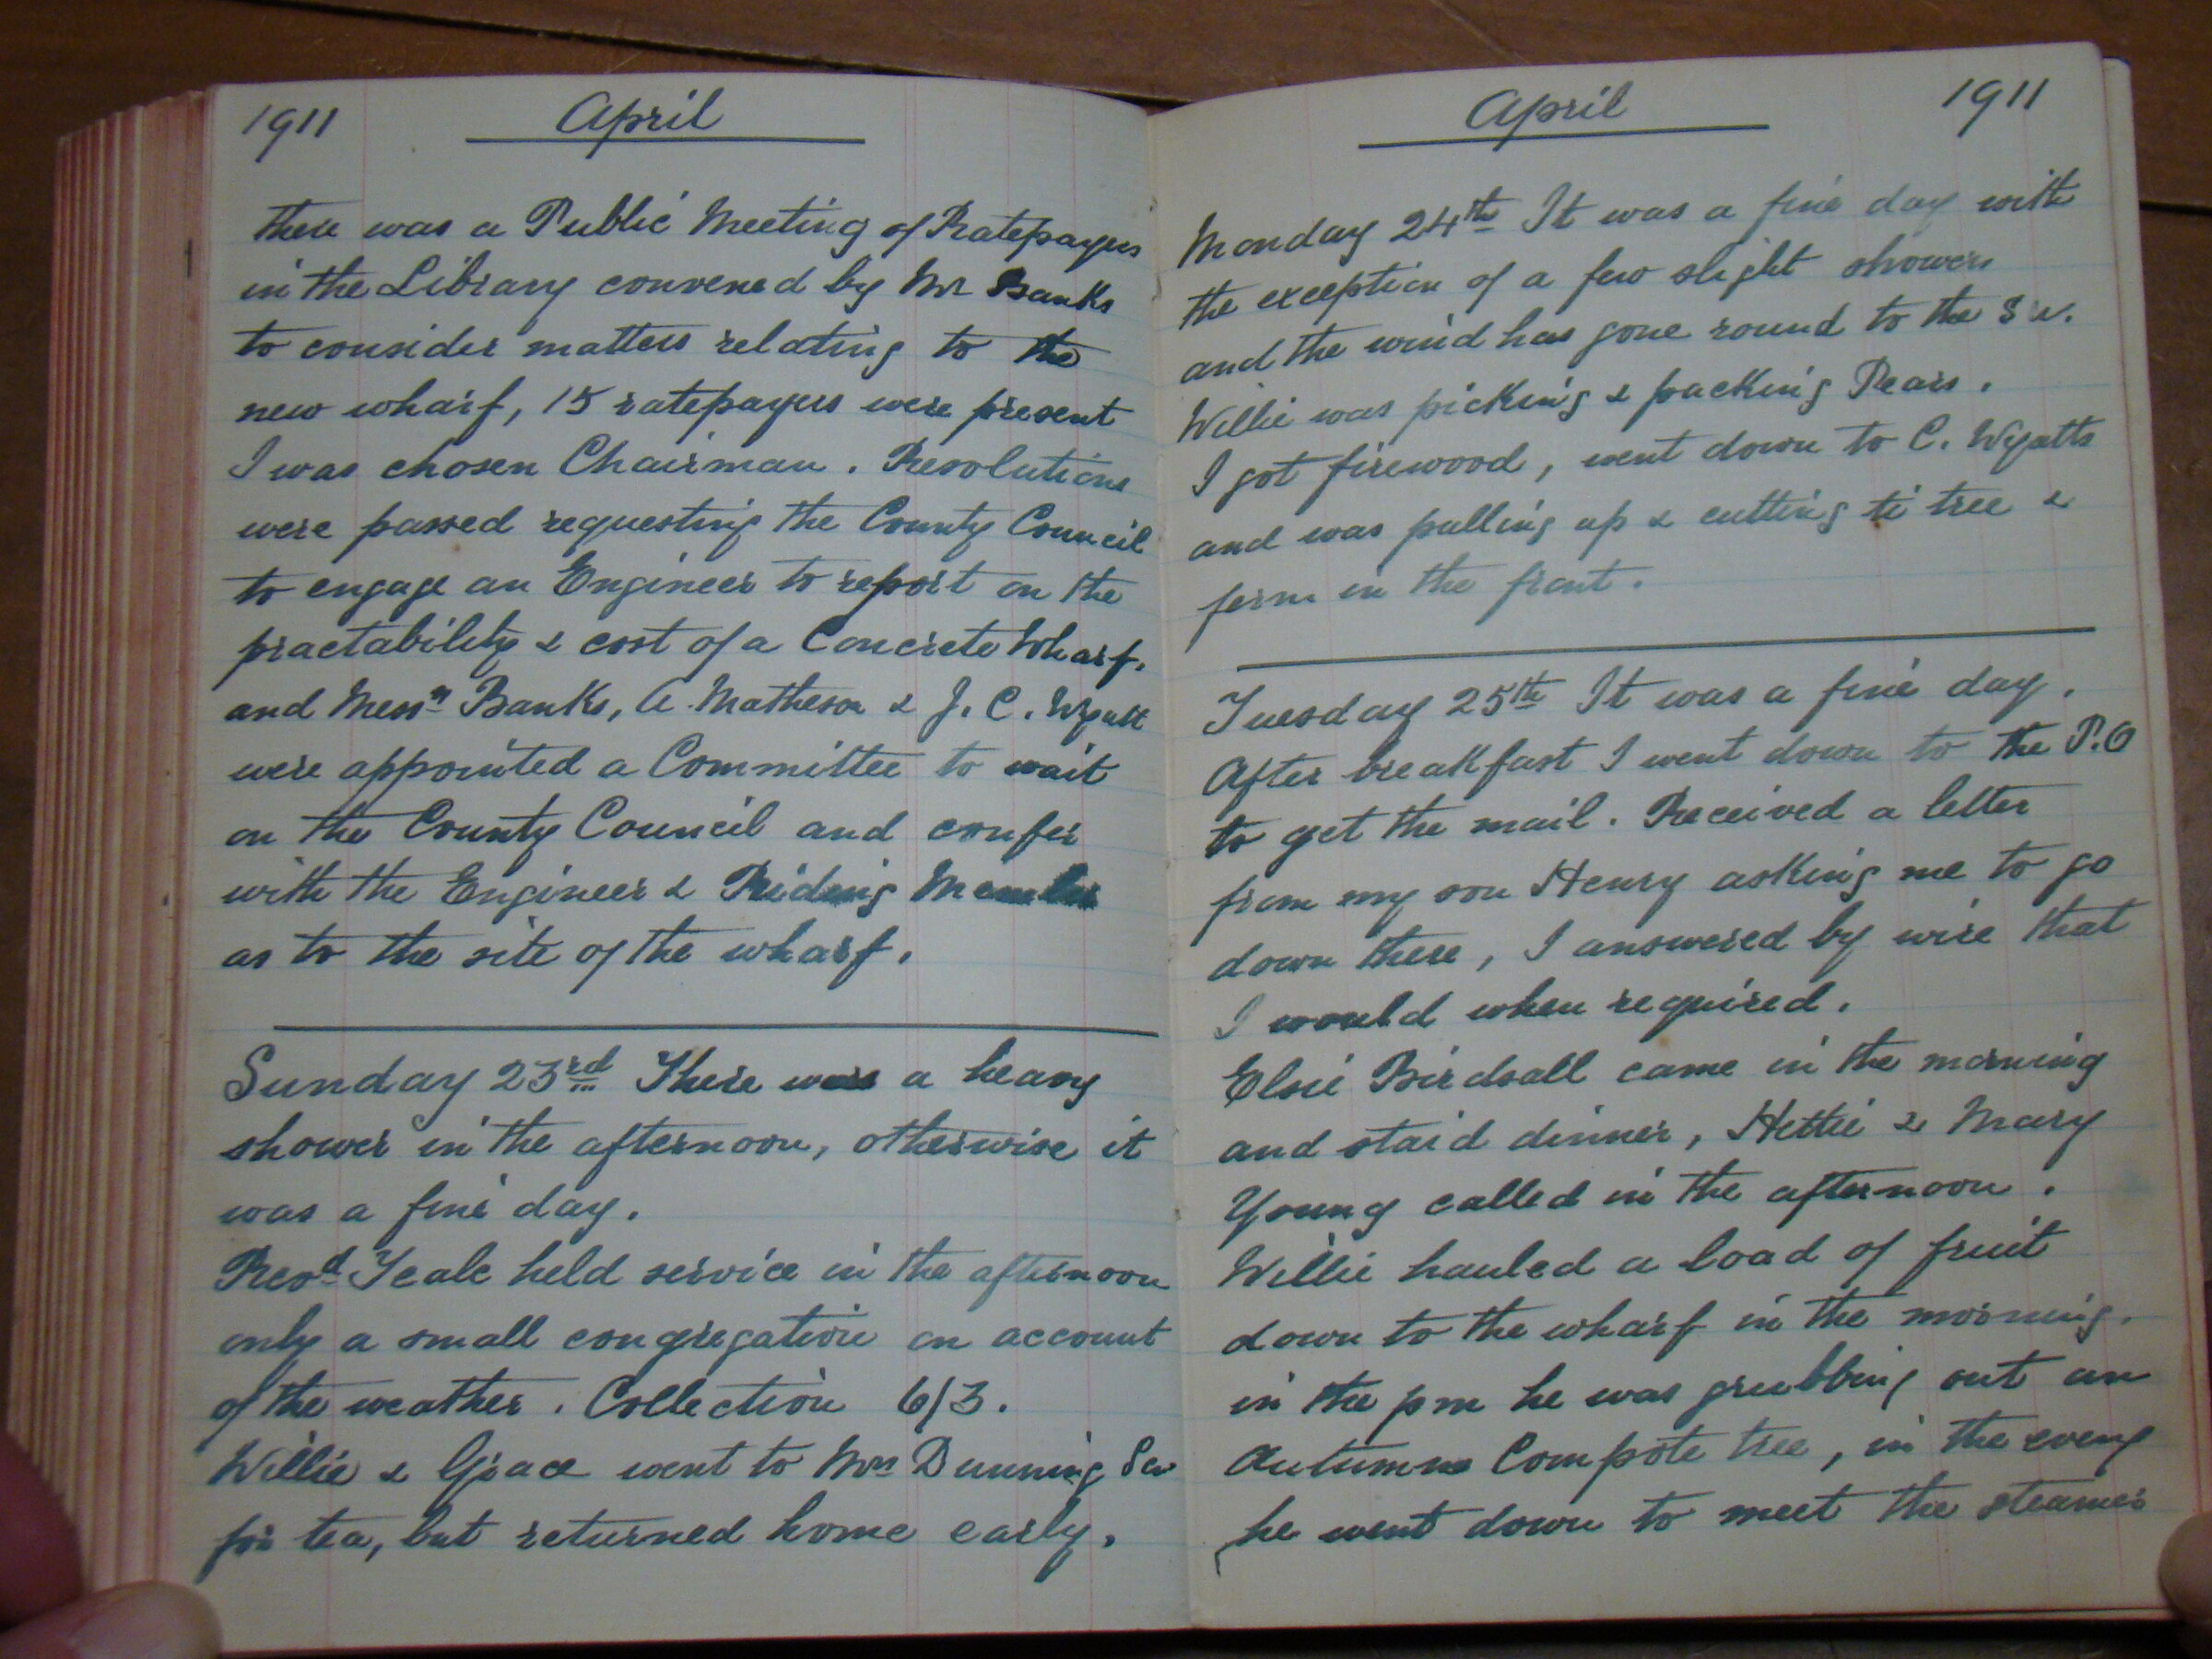 1911 April
there was a Public Meeting of Ratepayers
in the Library convened by Mr Banks
to consider matters relating to the
new wharf, 15 ratepayers were present
I was chosen Chairman. Resolutions
were passed requesting the County Council
to engage an Engineer to report on the
practability & cost of a Concrete Wharf.
and Messrs Banks, A. Matheson & J. C. Wyatt
were appointed a Committee to wait
on the County Council and confer
with the Engineer & Riding Member
as to the site of the wharf.
Sunday 23rd There was a heavy
shower in the afternoon, otherwise it
was a fine day.
Revd Yeale held service in the afternoon
only a small congregation on account
of the weather. Collection 6/3.
Willie & Grace went to Mrs Dunning Sen
for tea, but returned home early.
April 1911
Monday 24th It was a fine day with
the exception of a few slight showers
and the wind has gone round to the SW.
Willie was picking & packing Pears.
I got firewood, went down to C. Wyatts
and was pulling up & cutting ti tree &
fern in the front.
Tuesday 25th It was a fine day.
After breakfast I went down to the P.O
to get the mail. Received a letter
from my son Henry asking me to go
down there, I answered by wire that
I would when required.
Elsie Birdsall came in the morning
and staid dinner, Hettie & Mary
Young called in the afternoon.
Willie hauled a load of fruit
down to the wharf in the morning.
in the pm he was grubbing out an
Autumn Compote tree, in the eveng
he went down to meet the steamer